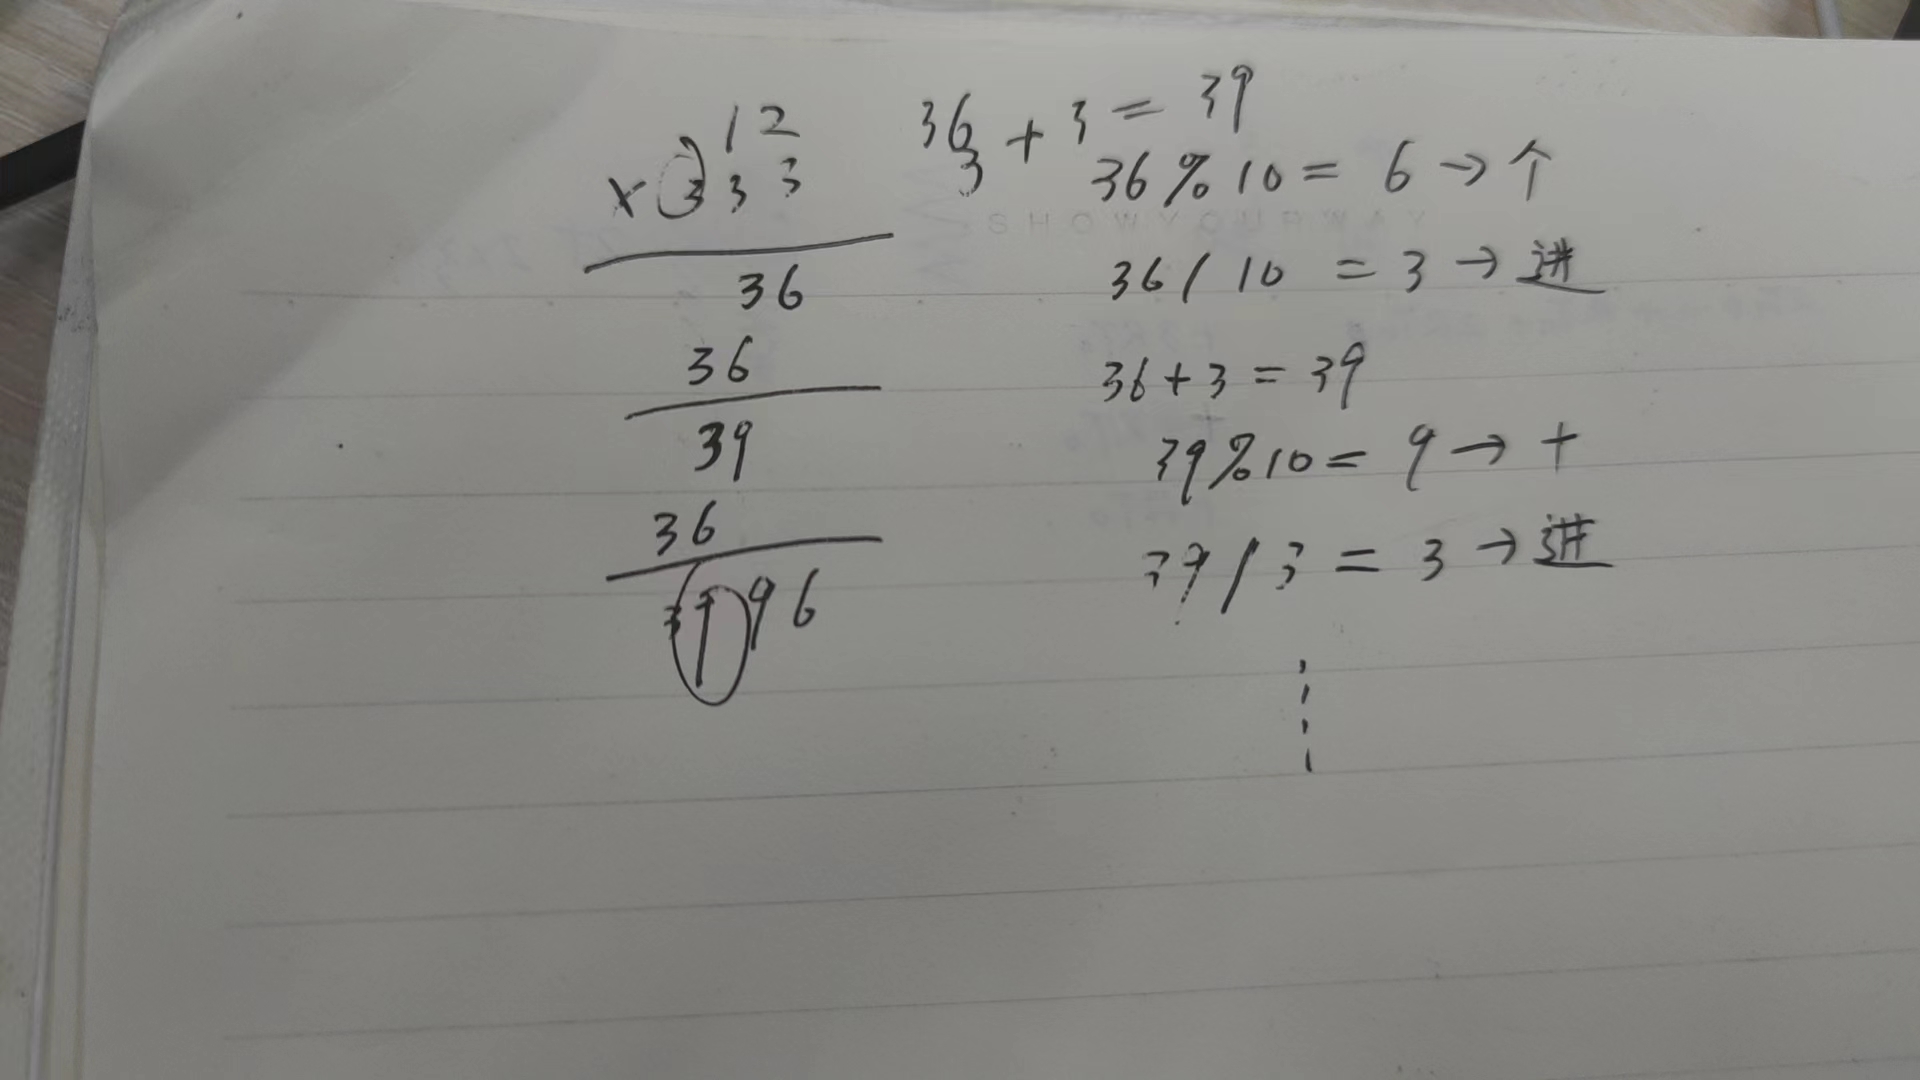 12
× 333
36
36
39
36
3996
36 + 3 = 39
3
36 % 10 = 6 → 个
SHOWYOURWAY
36 / 10 = 3 → 进
36 + 3 = 39
39 % 10 = 9 → 十
39 / 3 = 3 → 进